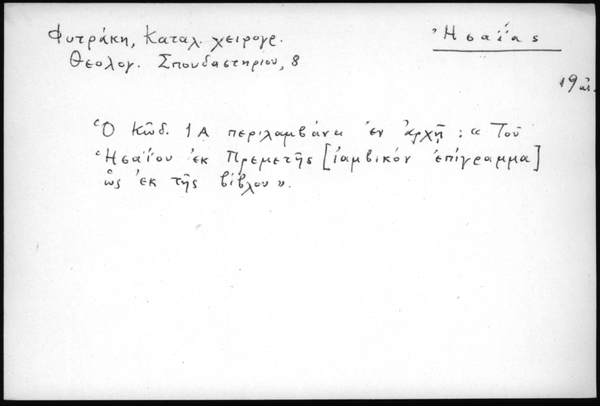 Φυτράκη, Καταλ. χειρογρ.
Θεολογ. Σπουδαστηρίου, 8
Ἠσαΐας
19 αἰ.
Ὁ Κῶδ. 1Α περιλαμβάνει ἐν ἀρχῇ : « Τοῦ
Ἠσαΐου ἐκ Πρεμετῆς [ἰαμβικόν ἐπίγραμμα]
ὡς ἐκ τῆς βίβλου ».